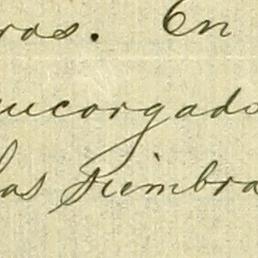 ros. En
encorgado
las siembra